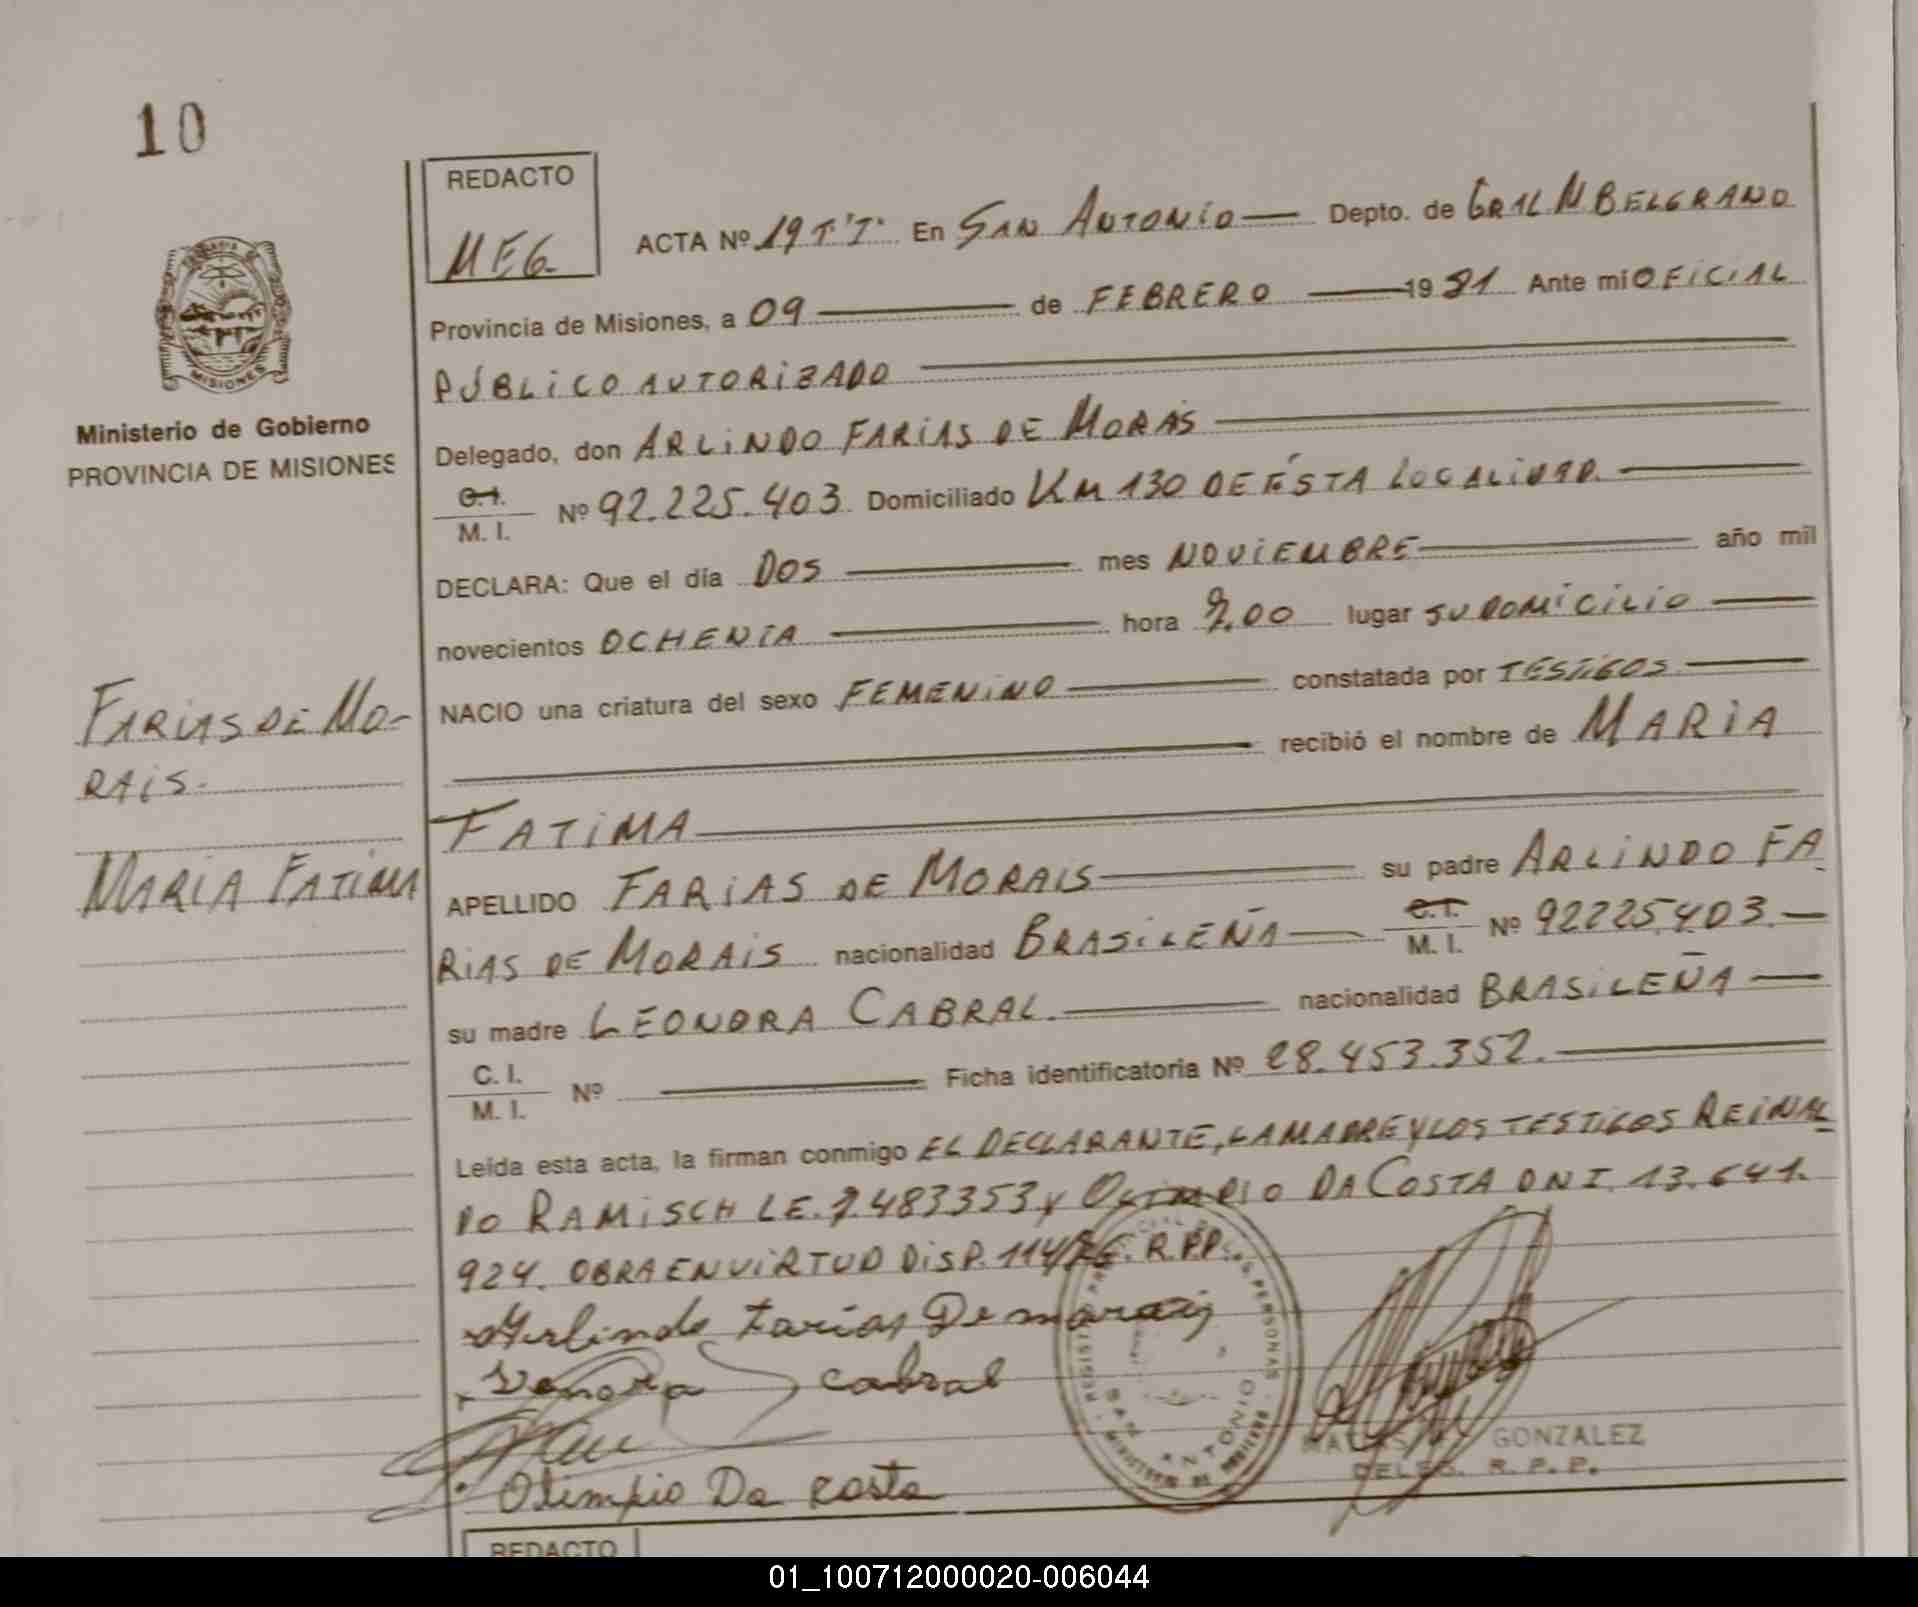 10
REDACTO
MEG.
ACTA Nº 19 T.'I.' En SAN ANTONIO Depto. de GRAL M BELGRANO
MISIONES
Ministerio de Gobierno
PROVINCIA DE MISIONES
Provincia de Misiones, a 09 de FEBRERO 1981 Ante mi OFICIAL
PÚBLICO AUTORIZADO
Delegado, don ARLINDO FARIAS DE MORAIS
C.I. M. I. Nº 92.225.403 Domiciliado KM 130 DE ÉSTA LOCALIDAD.
DECLARA: Que el día DOS mes NOVIEMBRE año mil
novecientos OCHENTA hora 9,00 lugar SU DOMICILIO
NACIO una criatura del sexo FEMENINO constatada por TESTIGOS
recibió el nombre de MARIA
FATIMA
FARIAS DE MO-
RAIS.
MARIA FATIMA
APELLIDO FARIAS DE MORAIS su padre ARLINDO FA
RIAS DE MORAIS nacionalidad BRASILEÑA C.I. M. I. Nº 92225.403.
su madre LEONORA CABRAL. nacionalidad BRASILEÑA
C. I. M. I. Nº Ficha identificatoria Nº 28.453.352.
Leída esta acta, la firman conmigo EL DECLARANTE, LA MADRE Y LOS TESTIGOS REINAL
DO RAMISCH LE. 7.483353 y OLIMPIO DA COSTA DNI. 13.641.
924. OBRA EN VIRTUD DISP. 114/76. R.P.P.
Arlindo Farias De morais
Lenora Cabral
Olimpio Da Costa
SAN ANTONIO
GONZALEZ
DELEG. R. P. P.
REDACTO
01_100712000020-006044